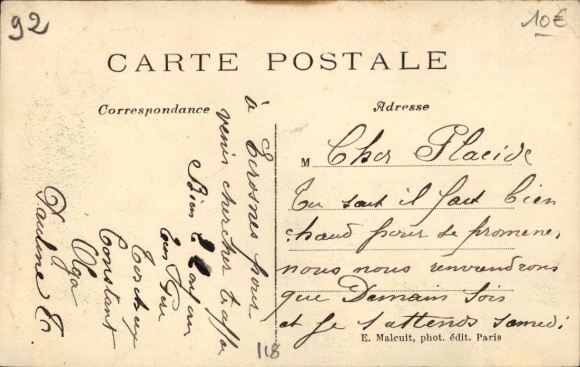 92
10€
CARTE POSTALE
Correspondance
Adresse
M Cher Placide
Tu sait il fait bien
chaud pour se promener
nous nous renvendrons
que Demain Soir
et Je t'attends Samedi
à Ecrosnes pour
venir chercher
Bien
ton Père
Constant
Olga
Pauline T
118
E. Malcuit, phot. édit. Paris